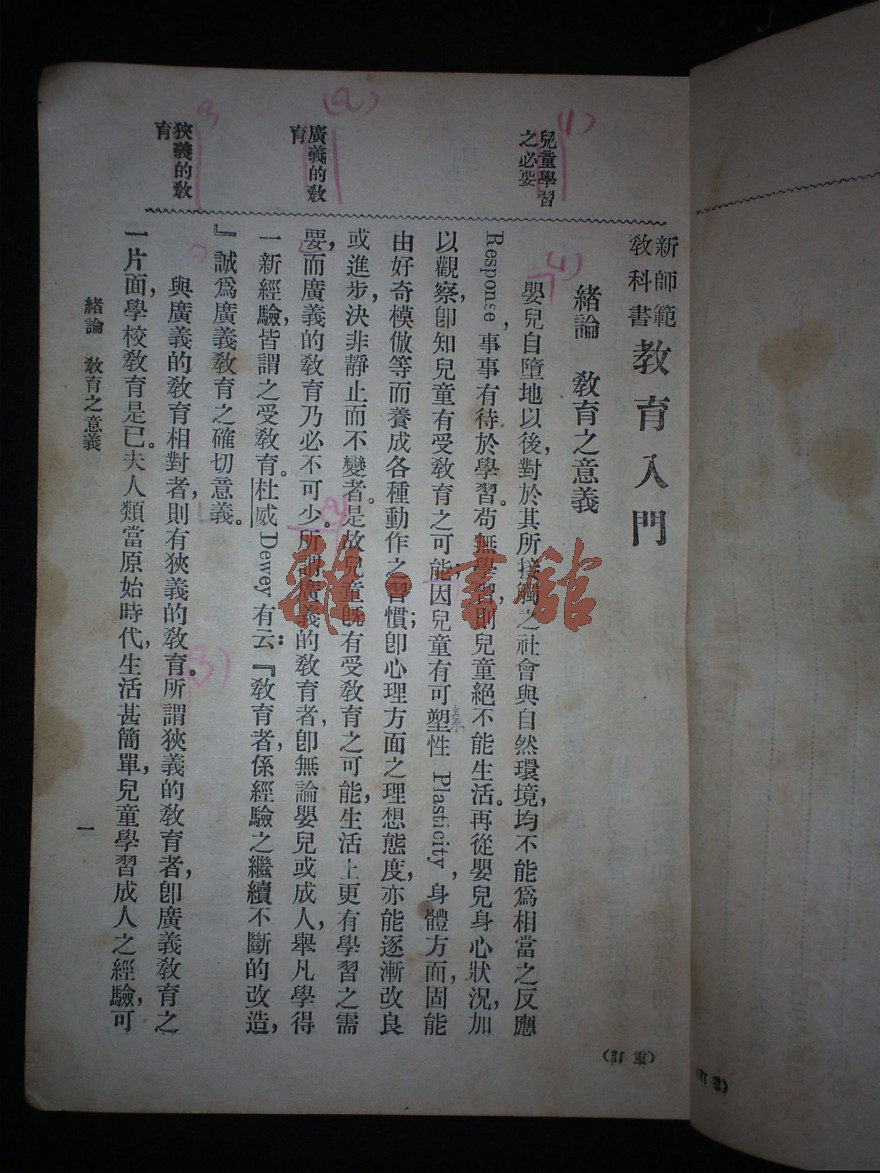 新師範
教科書
教育入門
緒論　教育之意義
兒童學習
之必要
嬰兒自墮地以後，對於其所接觸之社會與自然環境，均不能爲相當之反應
Response，事事有待於學習。苟無學習，則兒童絕不能生活。再從嬰兒身心狀況，加
以觀察，卽知兒童有受敎育之可能；因兒童有可塑性 Plasticity，身體方面，固能
由好奇模倣等而養成各種動作之習慣；卽心理方面之理想態度，亦能逐漸改良
廣義的敎
育
或進步，決非靜止而不變者。是故兒童旣有受敎育之可能，生活上更有學習之需
要，而廣義的敎育乃必不可少。所謂廣義的敎育者，卽無論嬰兒或成人，舉凡學得
一新經驗，皆謂之受敎育。杜威 Dewey 有云：『敎育者，係經驗之繼續不斷的改造，
』誠爲廣義敎育之確切意義。
狹義的敎
育
與廣義的敎育相對者，則有狹義的敎育。所謂狹義的敎育者，卽廣義敎育之
一片面，學校敎育是已。夫人類當原始時代，生活甚簡單，兒童學習成人之經驗，可
緒論　敎育之意義
一
（重訂）
雜·書館
(1)
(2)
3
(1)
(2)
(3)